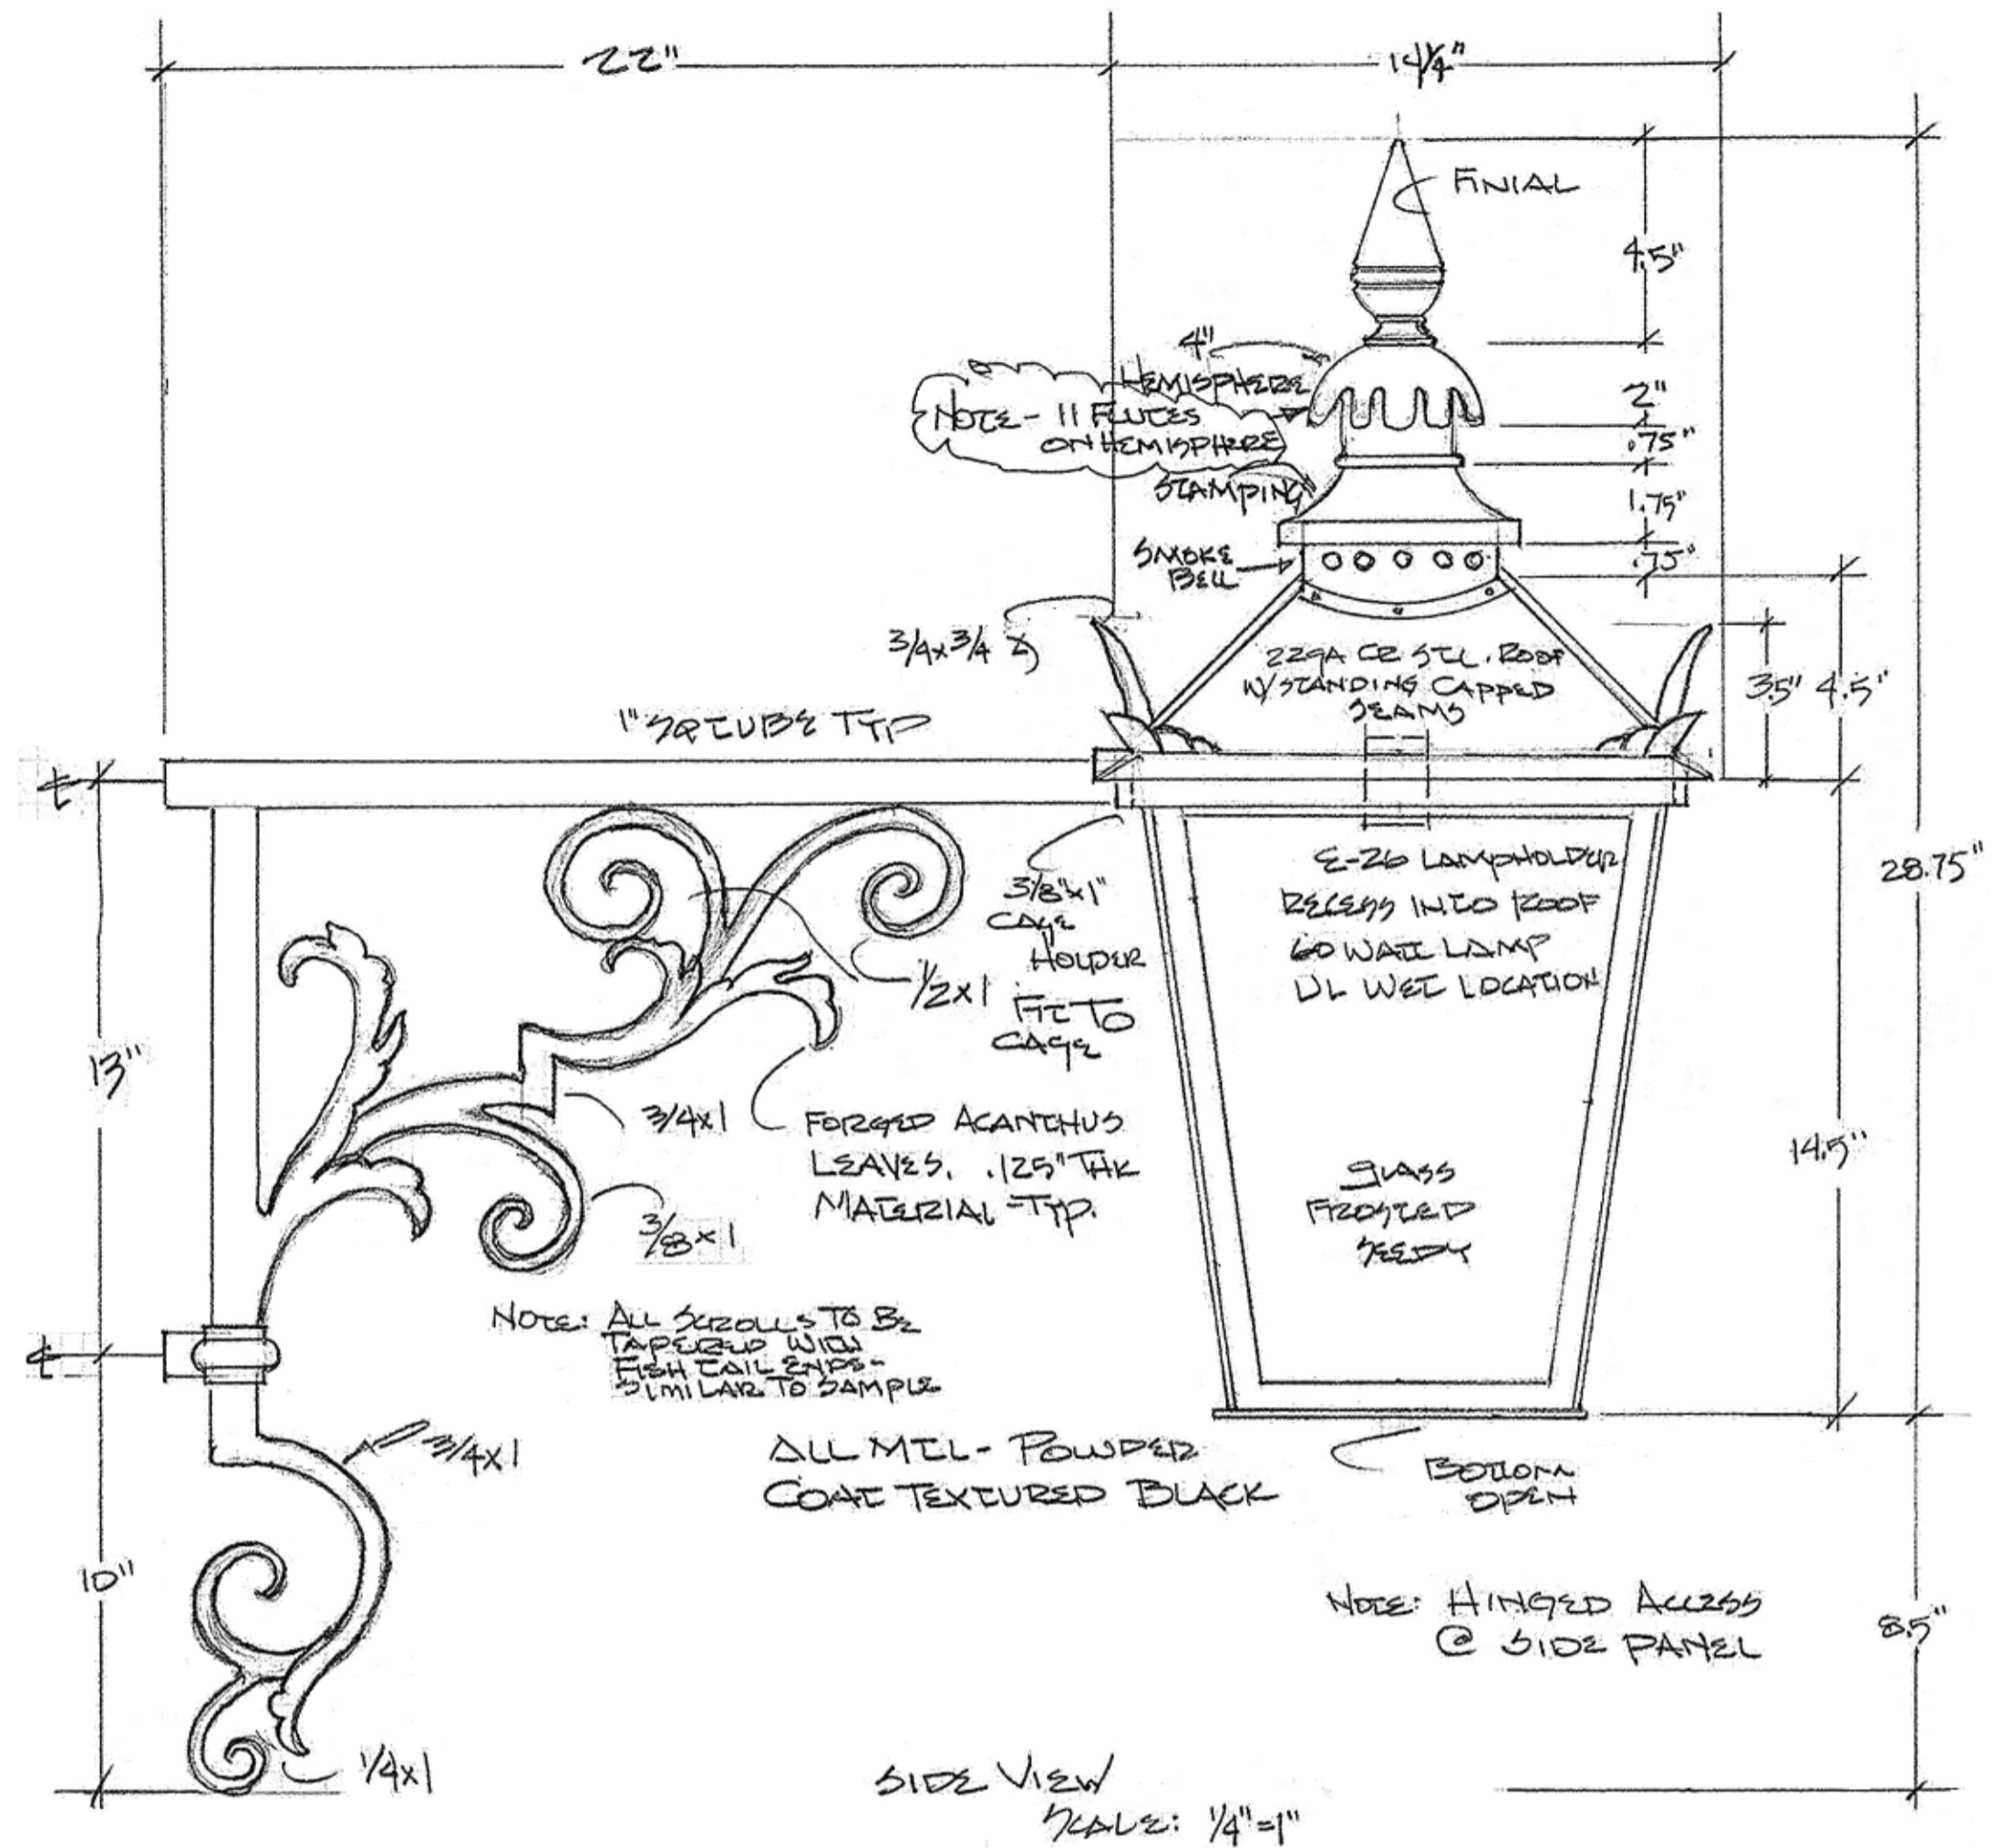 22"
14 1/4"
FINIAL
4.5"
4"
HEMISPHERE
NOTE - 11 FLUTES
ON HEMISPHERE
2"
.75"
STAMPING
1.75"
SMOKE
BELL
.75"
3/4 x 3/4
22GA CR STL. ROOF
W/ STANDING CAPPED
SEAMS
3.5"
4.5"
1" SQ TUBE TYP
28.75"
E-26 LAMPHOLDER
RECESS INTO ROOF
60 WATT LAMP
UL WET LOCATION
3/8" x 1"
CAGE
HOLDER
FIT TO
CAGE
1/2 x 1
13"
3/4 x 1
FORGED ACANTHUS
LEAVES. .125" THK
MATERIAL - TYP.
14.5"
GLASS
FROSTED
SEEDY
3/8 x 1
NOTE: ALL SCROLLS TO BE
TAPERED WITH
FISH TAIL ENDS -
SIMILAR TO SAMPLE
3/4 x 1
ALL MTL - POWDER
COAT TEXTURED BLACK
BOTTOM
OPEN
10"
NOTE: HINGED ACCESS
@ SIDE PANEL
8.5"
1/4 x 1
SIDE VIEW
SCALE: 1/4" = 1"